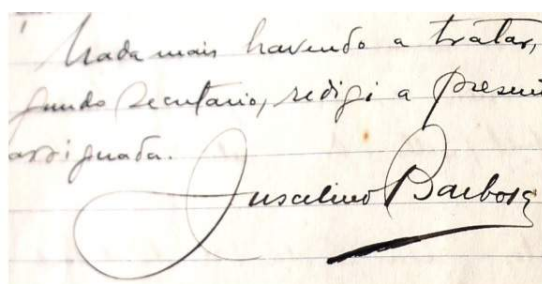 Nada mais havendo a tratar,
gundo Secretario, redigi a presen
assignada.
Juscelino Barbosa